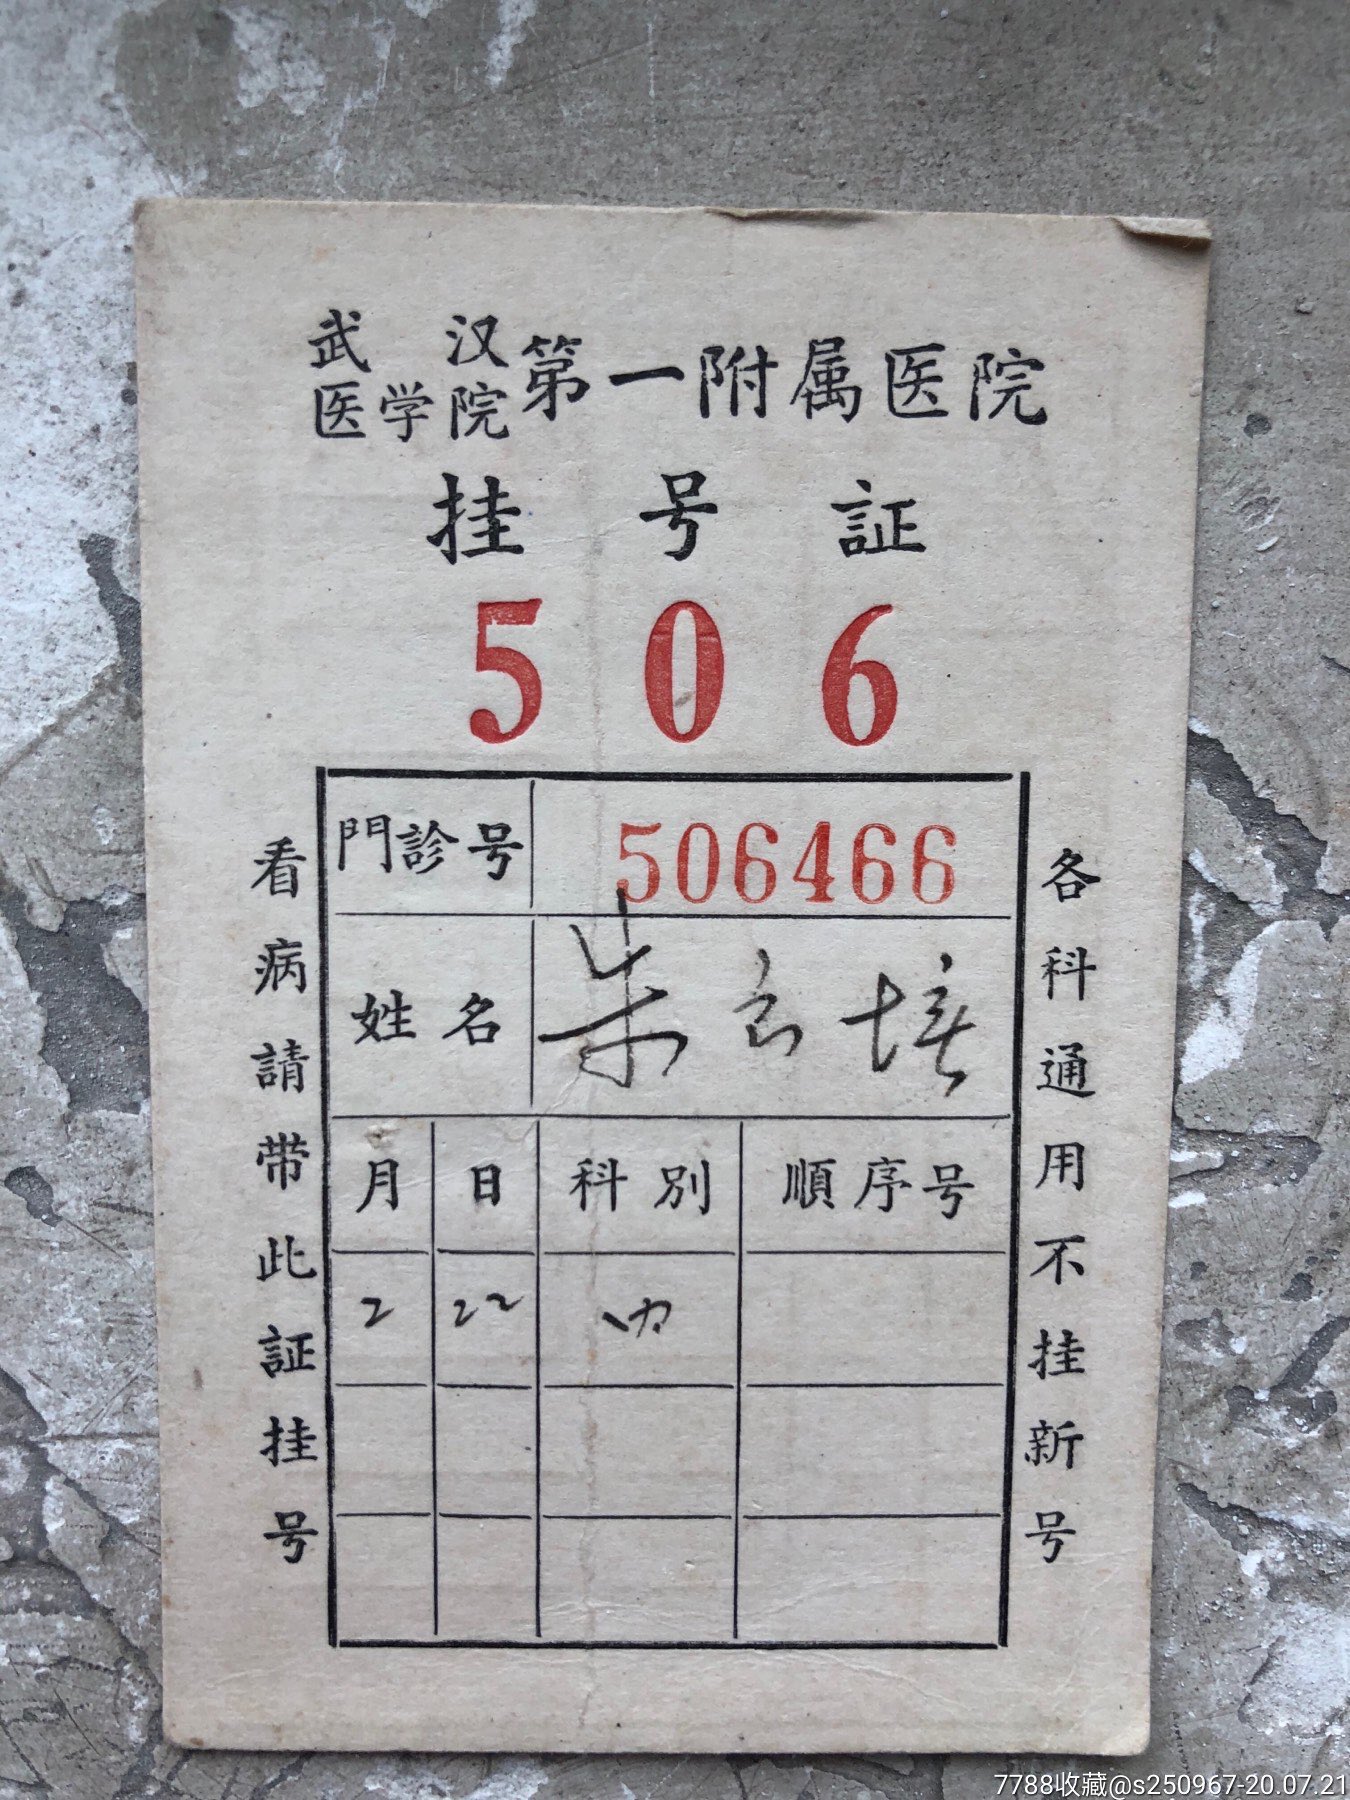 武汉医学院第一附属医院
挂号証
506
門診号 506466
姓名 朱玄培
月 日 科別 順序号
2 22 内
看病請带此証挂号
各科通用不挂新号
7788收藏@s250967-20.07.21